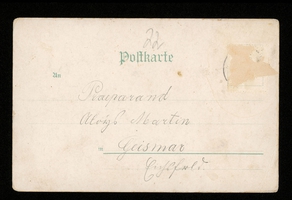 22
Postkarte
An
Praeparand
Aloys Martin
in Geismar
Eichsfeld.